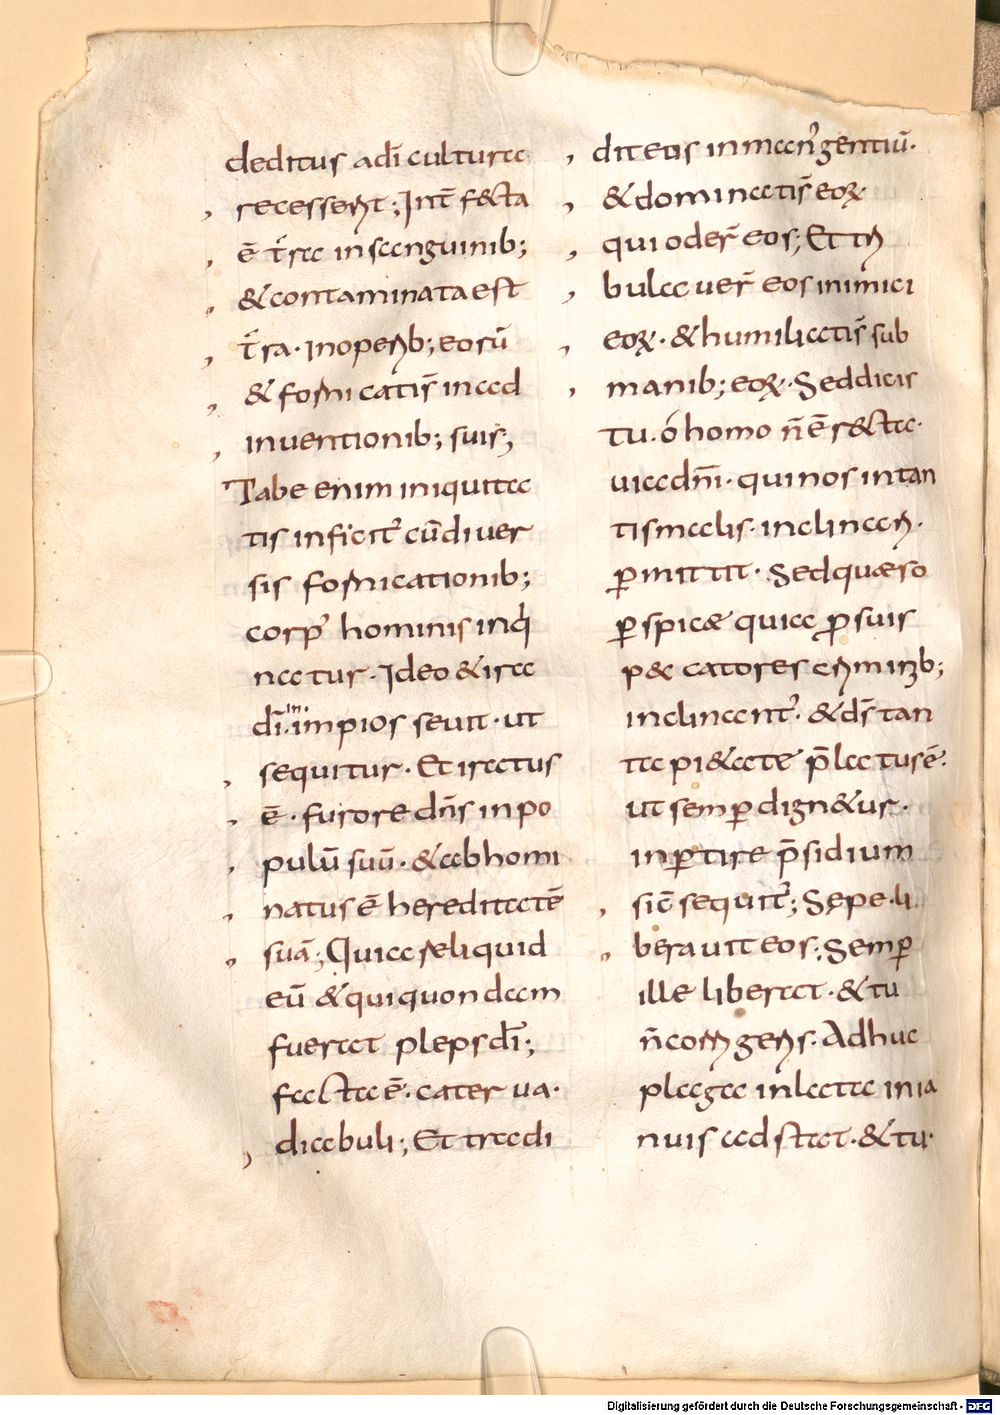 deditus adi̅ cultura
recesserit; Int̅ fecta
ē t̅ra insanguinib;
& contaminata est
t̅ra. inoperib; eorū
& fornicatis̅ in ad
inuentionib; suis,
Tabe enim iniquita
tis inficit᷒ cū diuer
sis fornicationib;
corp᷒ hominis inq̅
natur. Ideo & ira
di̅. in impios seuit. ut
sequitur. Et iratus
ē. furore dn̅s inpo
pulū suū. & abhomi
natus ē hereditatē
suā; Quia reliquid
eū & qui quondam
fuerat pleps di̅;
facta ē. caterua.
diabuli; Et tradi
dit eos in man᷒ gentiū.
& dominatis̅ eoꝝ
qui oder̅ eos; Et tri
bulauer̅ eos inimici
eoꝝ. & humiliatis̅ sub
manib; eoꝝ. Sed dicis
tu. ó homo n̅ ē recta
uia dn̅i. qui nos intan
tis malis. inclinari.
ꝑmittit. Sed quæso
ꝑspicæ quia ꝓ suis
peccatores criminib;
inclinant᷒. & ds̅ tan
ta pi&ate p̅latus ē.
ut semꝑ dign&ur.
inꝑtire p̅sidium
sic̅ sequit᷒; Sepe. li
berauit eos; Semꝑ
ille liberat. & tu
n̅ corrigeris. Adhuc
plaga inlata in ia
nuis adstat. & tu.
Digitalisierung gefördert durch die Deutsche Forschungsgemeinschaft - DFG